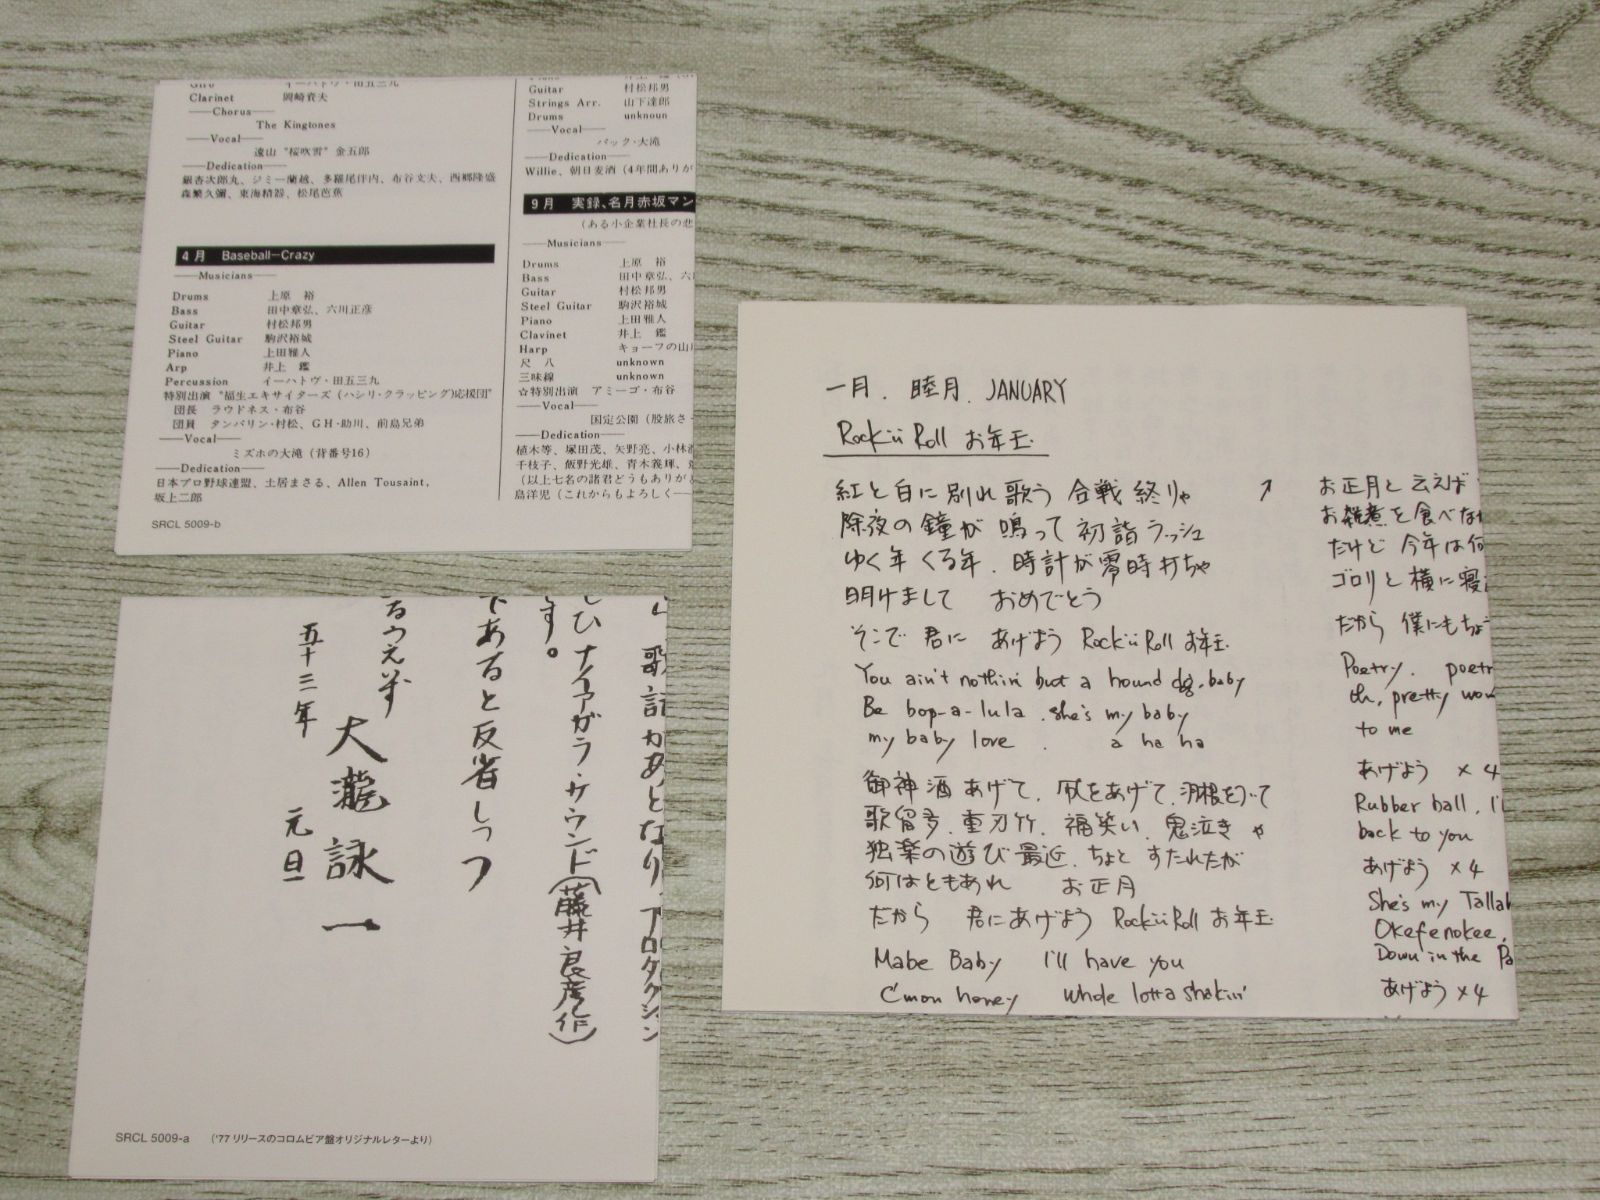 Clarinet 岡崎資夫
Chorus
The Kingtones
Vocal
遠山 "桜吹雪" 金五郎
Dedication
銀杏次郎丸、ジミー蘭越、多羅尾伴内、布谷文夫、西郷隆盛
森繁久彌、東海精器、松尾芭蕉
4月 Baseball-Crazy
Musicians
Drums 上原 裕
Bass 田中章弘、六川正彦
Guitar 村松邦男
Steel Guitar 駒沢裕城
Piano 上田雅人
Arp 井上 鑑
Percussion イーハトヴ・田五三九
特別出演 "福生エキサイターズ (ハシリ・クラッピング)応援団"
団長 ラウドネス・布谷
団員 タンバリン・村松、GH・助川、前島兄弟
Vocal
ミズホの大滝 (背番号16)
Dedication
日本プロ野球連盟、土居まさる、Allen Tousaint,
坂上二郎
SRCL 5009-b
Guitar 村松邦男
Strings Arr. 山下達郎
Drums unknoun
Vocal
バック・大滝
Dedication
Willie、朝日麦酒 (4年間ありが
9月 実録、名月赤坂マン
(ある小企業社長の悲
Musicians
Drums 上原 裕
Bass 田中章弘、六
Guitar 村松邦男
Steel Guitar 駒沢裕城
Piano 上田雅人
Clavinet 井上 鑑
Harp キョーフの山
尺 八 unknown
三味線 unknown
☆特別出演 アミーゴ・布谷
Vocal
国定公園 (股旅さ
Dedication
植木等、塚田茂、矢野亮、小林
千枝子、飯野光雄、青木義輝、
(以上七名の諸君どうもありが
島洋児 (これからもよろしく
歌記があとなり、プロダクション
しひナイアガラ・サウンド(藤井良彦作)
す。
であると反省しつつ
るうえ
五十三年 元旦
大瀧詠一
SRCL 5009-a ('77 リリースのコロムビア盤オリジナルレターより)
一月. 睦月. JANUARY
Rock'n'Roll お年玉.
紅と白に別れ歌う 合戦終りゃ
除夜の鐘が鳴って初詣ラッシュ
ゆく年くる年. 時計が零時打ちゃ
明けまして おめでとう
そこで 君に あげよう Rock'n'Roll お年玉.
You ain't nothin' but a hound dog, baby
Be bop-a-lula. she's my baby
my baby love. a ha ha
御神酒あげて、凧をあげて、羽根をついて
歌留多、重刃竹、福笑い、鬼泣きゃ
独楽の遊び最近、ちょと すたれたが
何はともあれ お正月
だから 君にあげよう Rock'n'Roll お年玉
Mabe Baby I'll have you
C'mon honey whole lotta shakin'
↗
お正月と云えば
お雑煮を食べな
だけど 今年は何
ゴロリと横に寝
だから 僕にもちょ
Poetry. poetr
oh, pretty wom
to me
あげよう × 4
Rubber ball, I'l
back to you
あげよう × 4
She's my Tallah
Okefenokee.
Down in the Pa
あげよう × 4